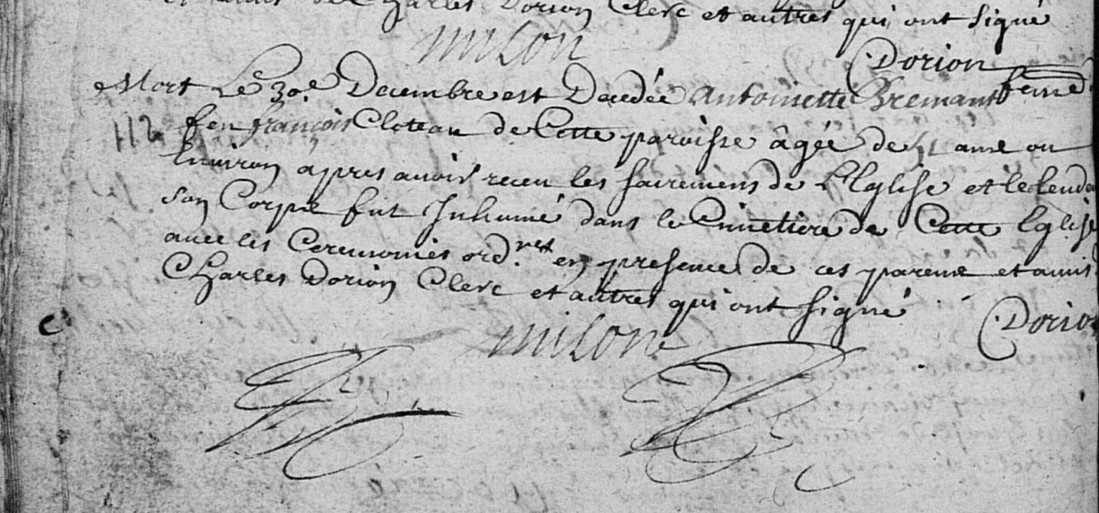 de Charles Dorion Clerc et autres qui ont signé
milon
Dorion
Mort Le 30.e Decembre est Decedée Antoinette Bremant feme d
112 feu françois Cloteau de Cette paroisse âgée de ans ou
Environ apres avoir receu les sacremens de l'Eglise et le lende
son Corps fut Inhumé dans le Cimetiere de Cette Eglise
avec les Ceremonies ord.res en presence de ces parens et amis
Charles Dorion Clerc et autres qui ont signé
milon
Dorion